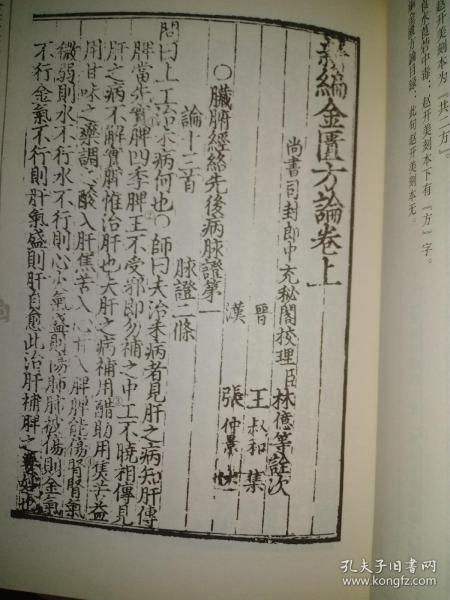 赵开美刻本为『共二方』。
赵开美刻本下有『方』字。
此句赵开美刻本无。
新編金匱方論卷上
尚書司封郎中充秘閣校理臣林億等詮次
晉 王叔和 集
漢 張仲景 述
〇臟腑經絡先後病脉證第一
論十三首 脉證二條
問曰上工治未病何也〇師曰夫治未病者見肝之病知肝傳
脾當先實脾四季脾王不受邪即勿補之中工不曉相傳見
肝之病不解實脾惟治肝也夫肝之病補用酸助用焦苦益
用甘味之藥調之酸入肝焦苦入心甘入脾脾能傷腎腎氣
微弱則水不行水不行則心火氣盛則傷肺肺被傷則金氣
不行金氣不行則肝氣盛則肝自愈此治肝補脾之要妙也
孔夫子旧书网
www.kongfz.com